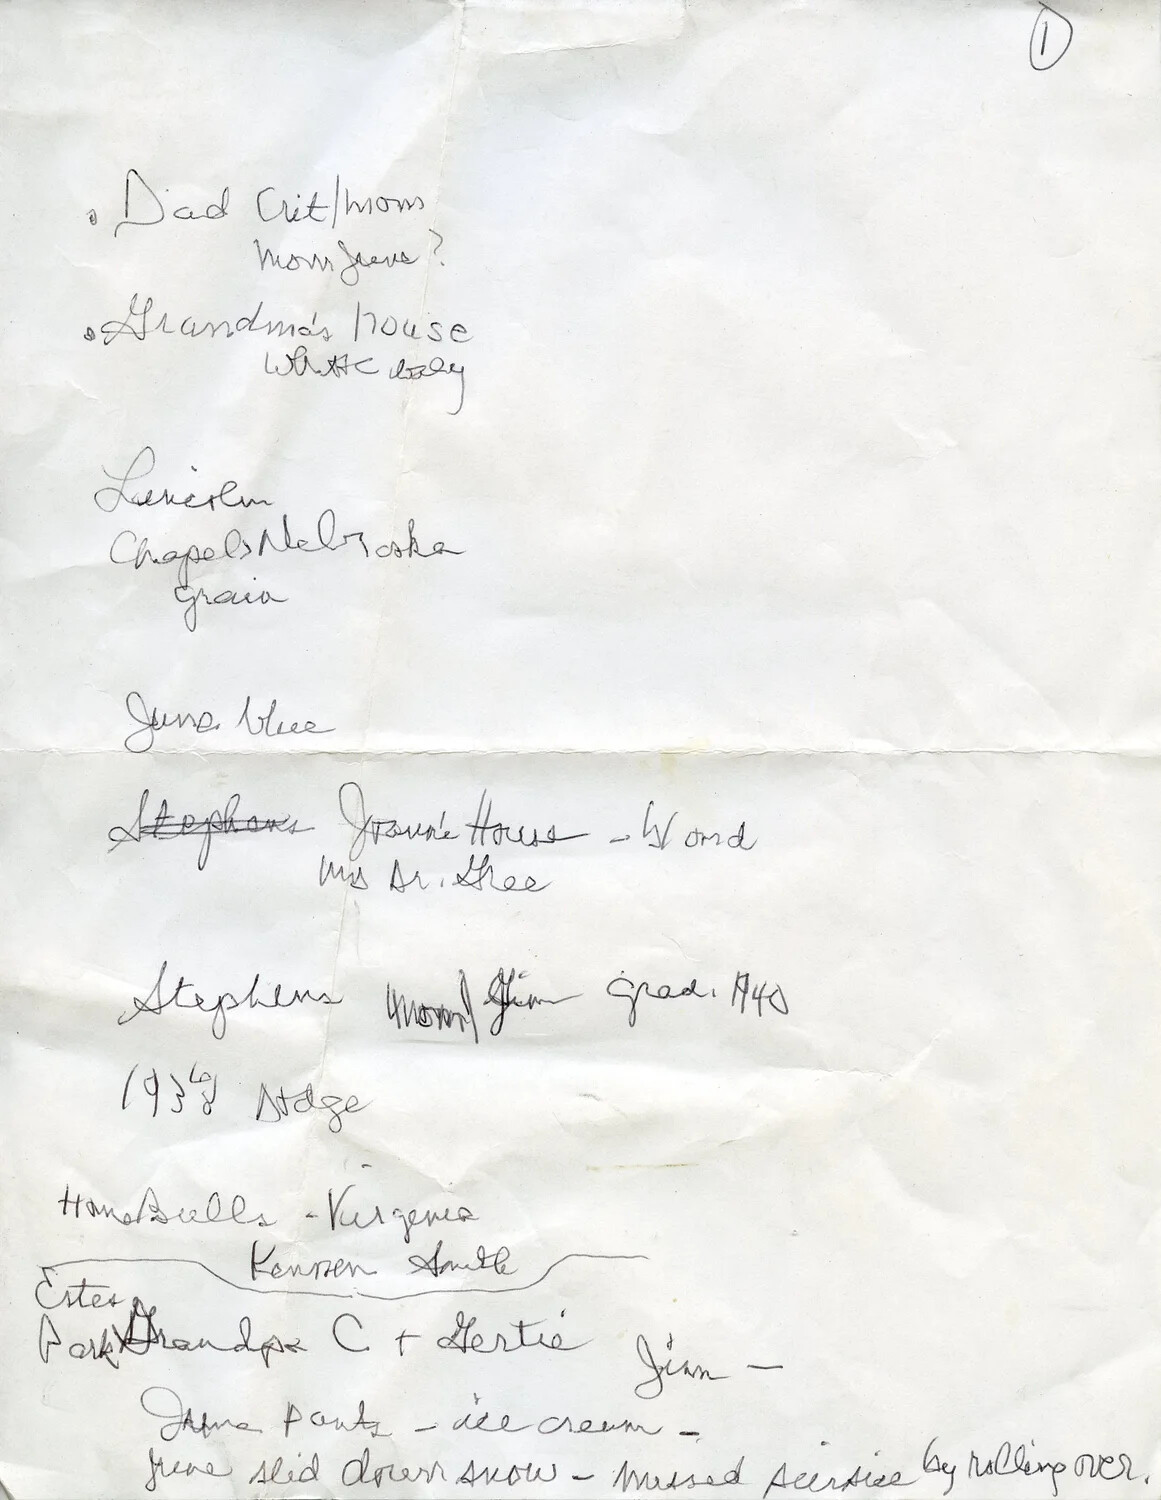 1
Dad Crit/Mom
Mom June?
Grandma's house
White baby
Lincoln
Chapels Nebraska
grain
June blue
Stephens Joann's House - Word
Mrs Dr.
Stephens Mom/Jim grad. 1940
193
- Virginia
Smith
Estes
Park Grandpa C + Gertie
Jim -
June Pants - ice cream -
June slid down snow - missed by rolling over.